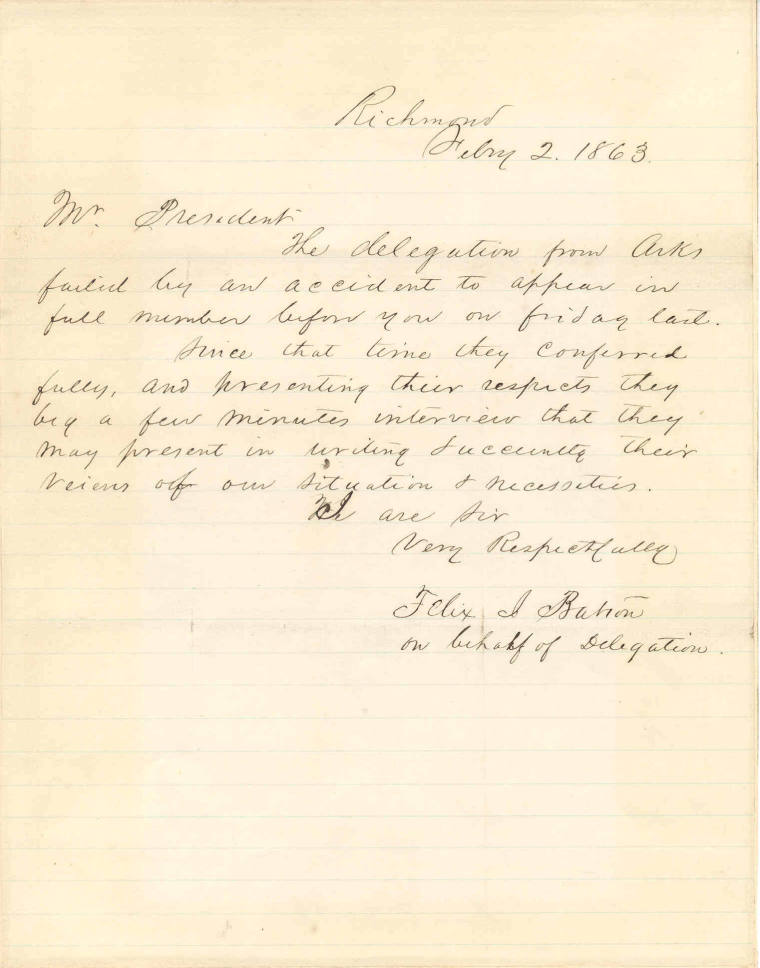 Richmond
Febry 2. 1863.
Mr. President
The delegation from Arks
failed by an accident to appear in
full number before you on friday last.
Since that time they conferred
fully, and presenting their respects they
beg a few minutes interview that they
may present in writing succinctly their
veiws of our situation & necessities.
We are Sir
Very Respectfully
Felix I Batson
on behalf of Delegation.